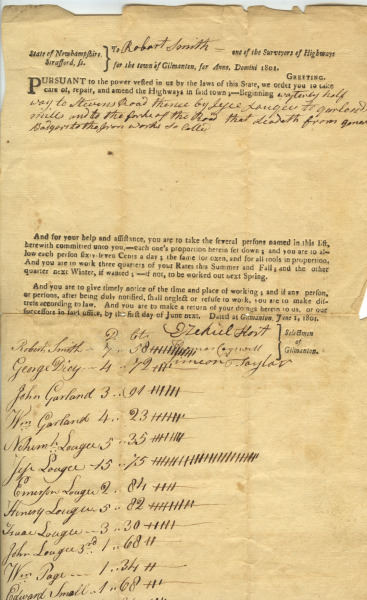 State of Newhampshire, } To Robert Smith — one of the Surveyors of Highways
Strafford, ss. for the town of Gilmanton, for Anno, Domini 1801.
GREETING.
PURSUANT to the power vested in us by the laws of this State, we order you to take
care of, repair, and amend the Highways in said town ;—Beginning westerly half
way to Stevens Road thence by Jesse Lougee to garlands
mills and to the forks of the Road that leadeth from
Badgers to the Iron works So Calld
And for your help and assistance, you are to take the several persons named in this list,
herewith committed unto you,—each one's proportion herein set down ; and you are to al-
low each person sixty-seven Cents a day ; the same for oxen, and for all tools in proportion.
And you are to work three quarters of your Rates this Summer and Fall ; and the other
quarter next Winter, if wanted ;—if not, to be worked out next Spring.
And you are to give timely notice of the time and place of working ; and if any person,
or persons, after being duly notified, shall neglect or refuse to work, you are to make dis-
tress according to law. And you are to make a return of your doings herein to us, or our
successors in said office, by the first day of June next. Dated at Gilmanton, June 1, 1801.
D. Cts. Ezekiel Hoit } Selectmen
Robert Smith -- 7 .. 58 Thomas Cogswell of
Simeon Taylor Gilmanton.
George Dicy -- 4 .. 72
John Garland 3 .. 91
Wm Garland 4 .. 23
Nehemh Lougee 5 .. 35
Jesse Lougee - 15 .. 75
Emerson Lougee 2 .. 84
Henery Lougee 5 .. 82
Isaac Lougee -- 3 .. 30
John Lougee 3rd 1 .. 68
Wm Page -- 1 .. 34
Edward Small 1 .. 68